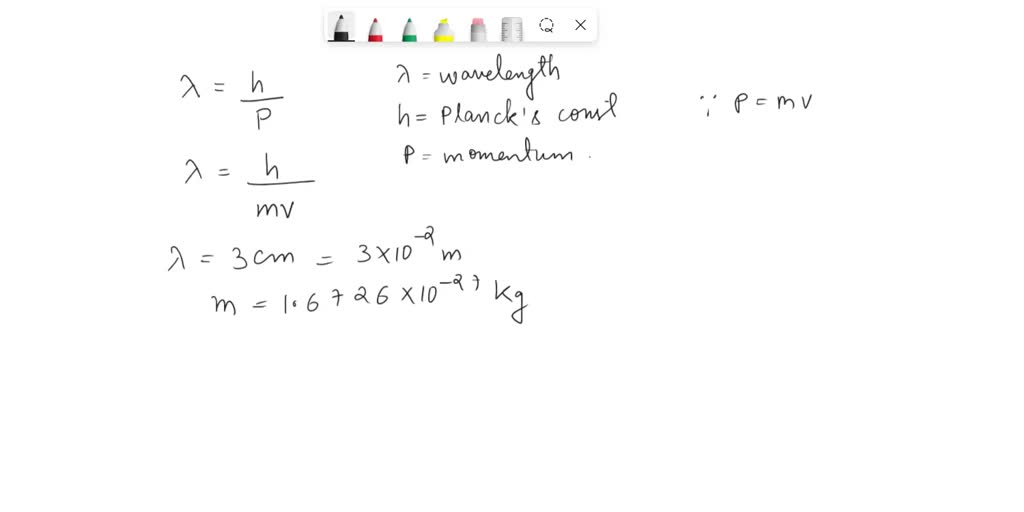 λ = h/P
λ = wavelength
h = Planck's const
P = momentum.
∵ P = mv
λ = h/mv
λ = 3 cm = 3×10⁻² m
m = 1.6726 ×10⁻²⁷ kg